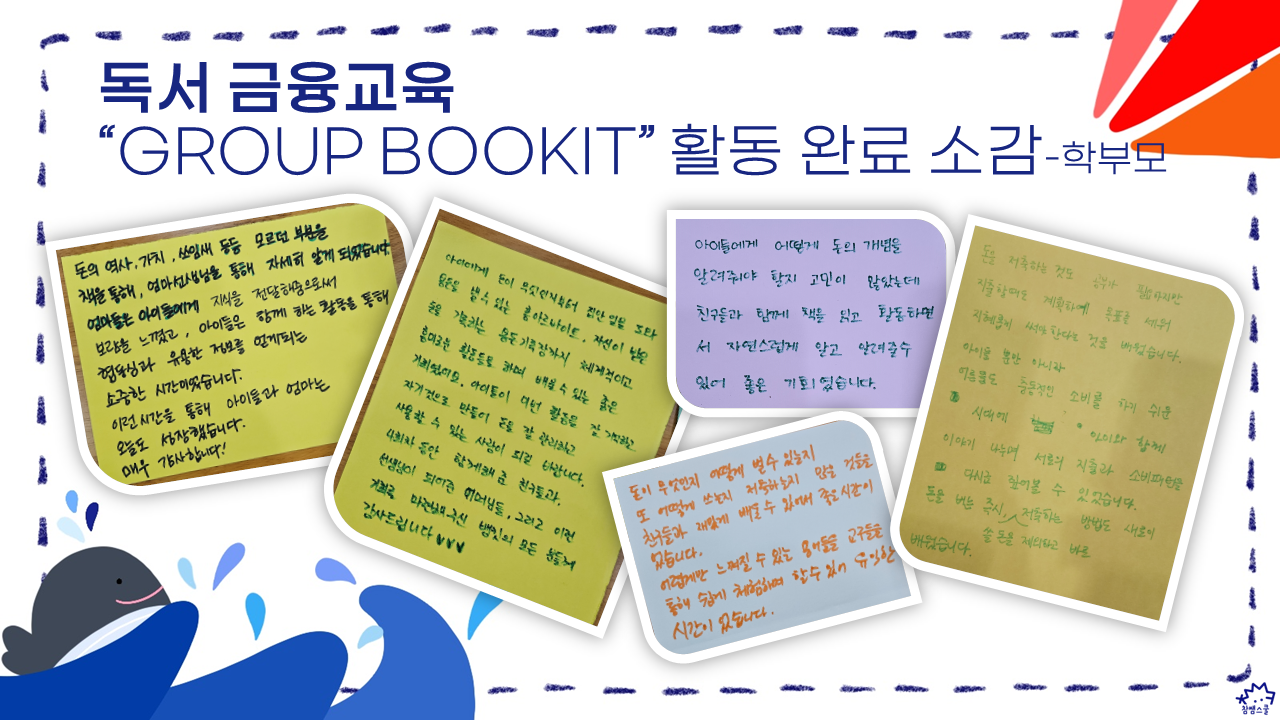 독서 금융교육
“GROUP BOOKIT” 활동 완료 소감-학부모
돈의 역사, 가치, 쓰임새 등등 모르던 부분을
책을 통해, 엄마선생님을 통해 자세히 알게 되었습니다.
엄마들은 아이들에게 지식을 전달해줌으로써
보람을 느꼈고, 아이들은 함께 하는 활동을 통해
협동심과 유용한 정보를 얻게되는
소중한 시간이었습니다.
이런 시간을 통해 아이들과 엄마는
오늘도 성장했습니다.
매우 감사합니다!
아이에게 돈이 무엇인지부터 집안일을 도와
용돈을 벌 수 있는 홈아르바이트, 자신이 남은
돈을 기록하는 용돈기록장까지 체계적이고
흥미로운 활동들로 하여 배울 수 있는 좋은
기회였어요. 아이들이 이번 활동을 잘 기억하고
자기것으로 만들어 돈을 잘 관리하고
사용할 수 있는 사람이 되길 바랍니다.
4회차 동안 함께해 준 친구들과,
선생님이 되어준 어머님들, 그리고 이런
기회를 마련해주신 모든 분들께
감사드립니다 ♥♥♥
아이들에게 어떻게 돈의 개념을
알려줘야 할지 고민이 많았는데
친구들과 함께 책을 읽고 활동하면
서 자연스럽게 알고 알려줄수
있어 좋은 기회였습니다.
돈이 무엇인지 어떻게 벌 수 있는지
또 어떻게 쓰는지 저축하는지 많은 것들을
친구들과 재밌게 배울 수 있어서 좋은시간이
었습니다.
어렵게만 느껴질 수 있는 용어들을 교구들을
통해 쉽게 체험하며 할수있어 유익한
시간이 었습니다.
돈을 저축하는 것도 공부가 필요하지만
지출할때도 계획하에 목표를 세워
지혜롭게 써야한다는 것을 배웠습니다.
아이들 뿐만 아니라
어른들도 충동적인 소비를 하기 쉬운
시대에 아이와 함께
이야기 나누며 서로의 지출과 소비패턴을
다시금 짚어볼 수 있었습니다.
돈을 버는 즉시, 저축하는 방법도 새로이
쓸 돈을 제외하고 바로
배웠습니다.
참쌤스쿨